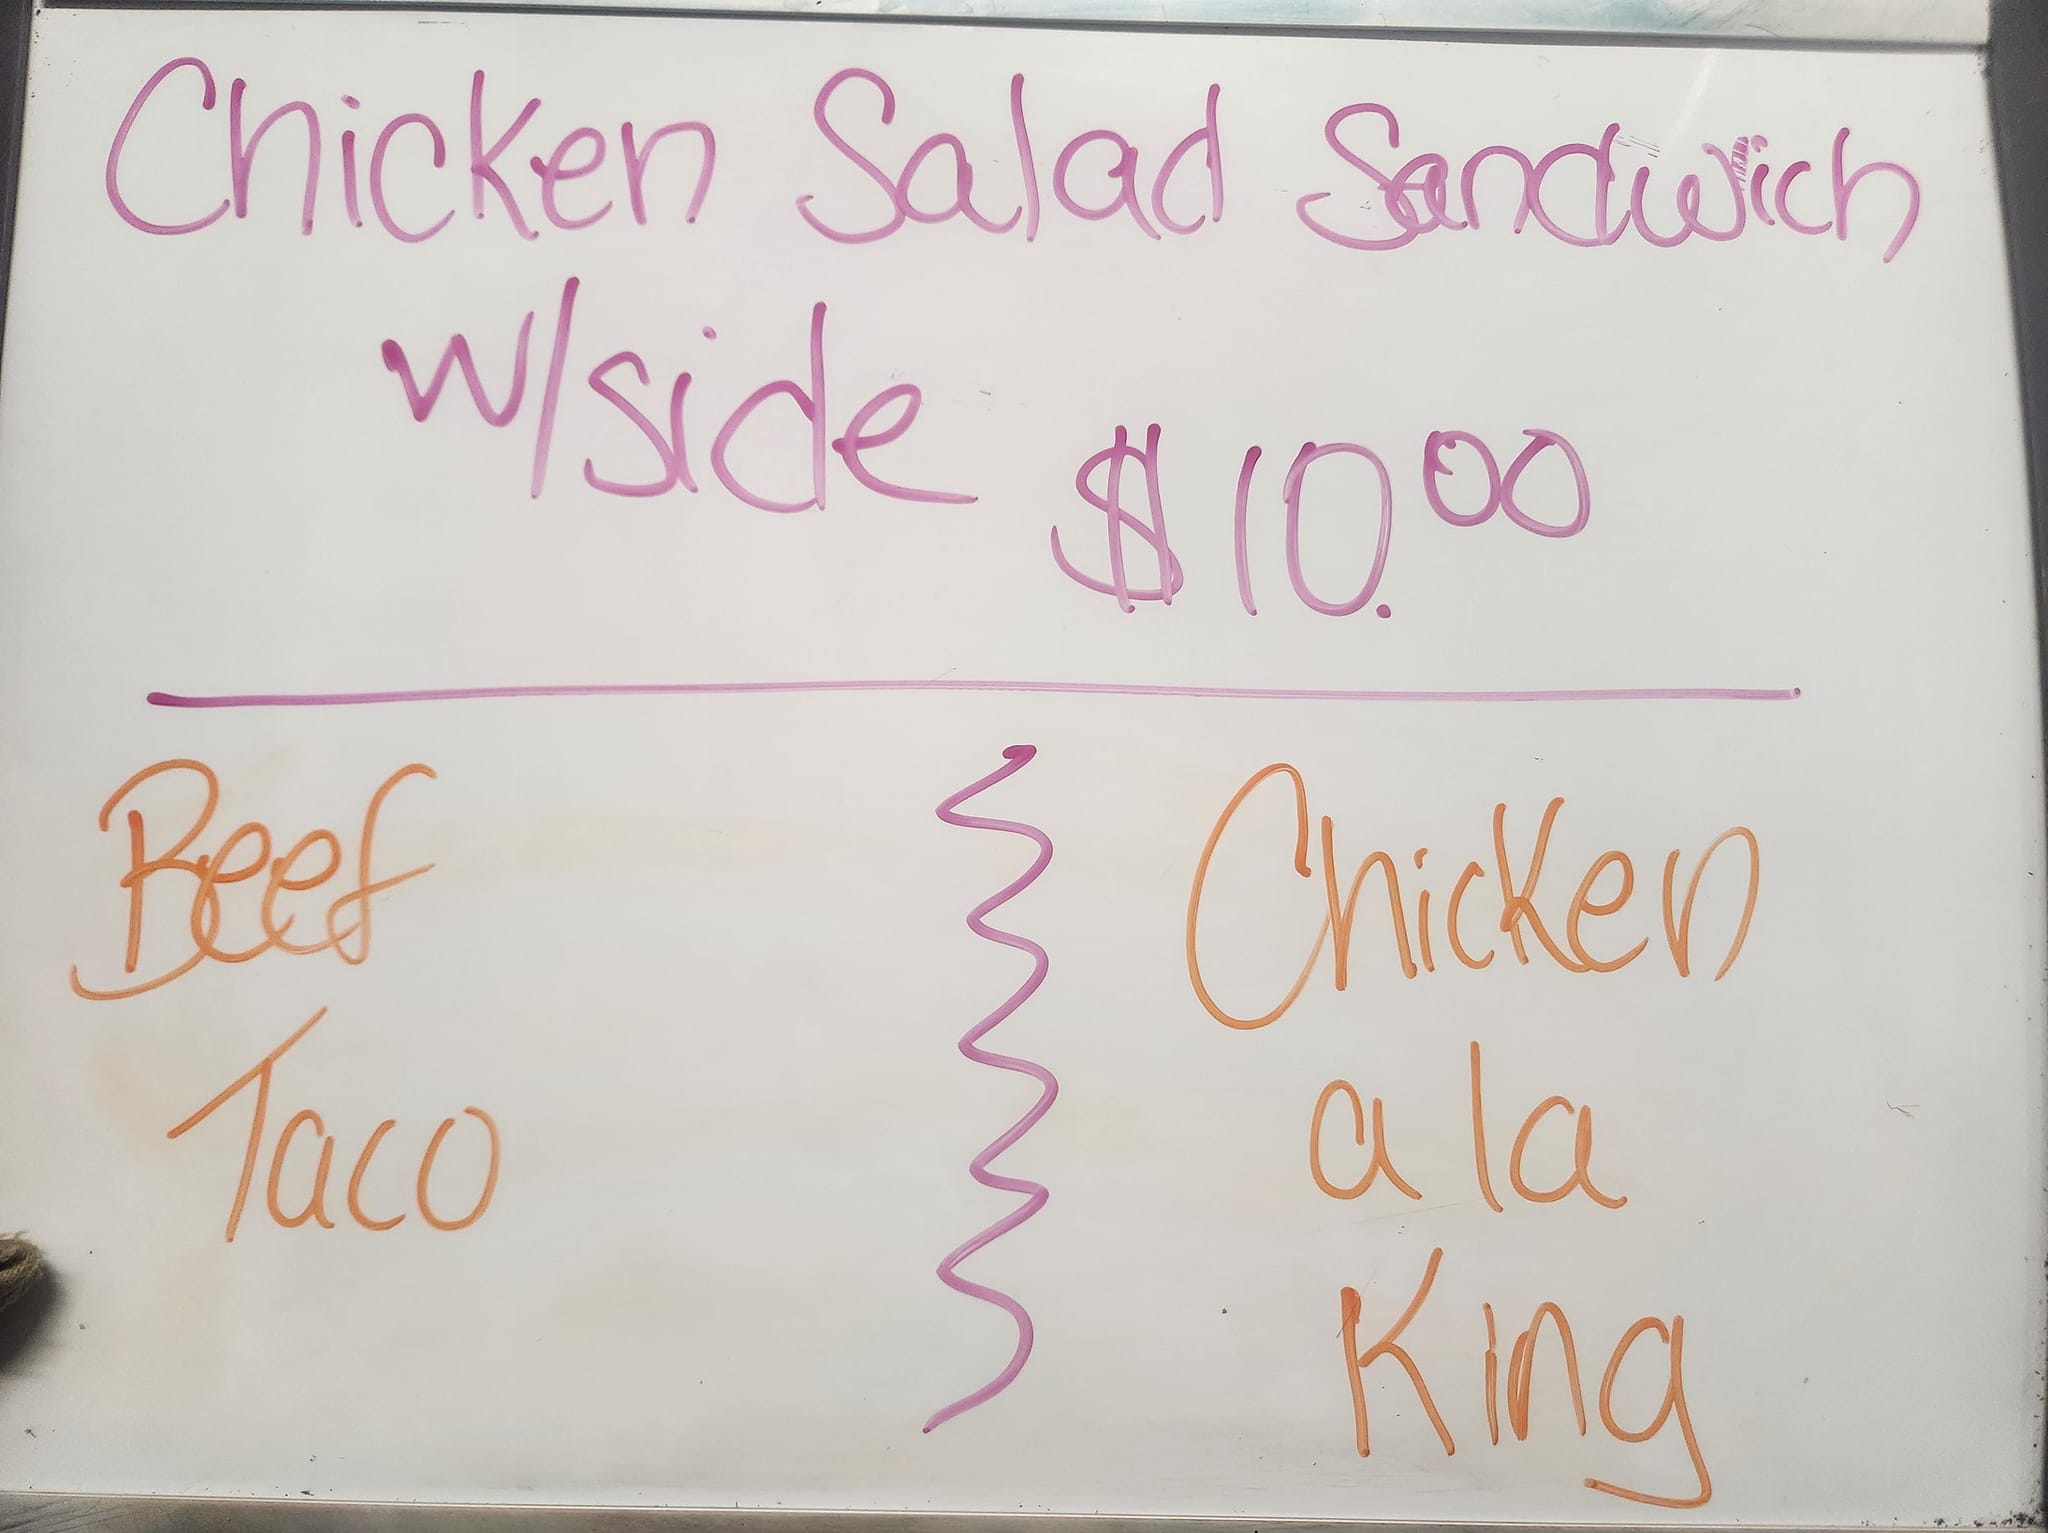 Chicken Salad Sandwich
w/side
$10.00
Beef
Taco
Chicken
a la
King